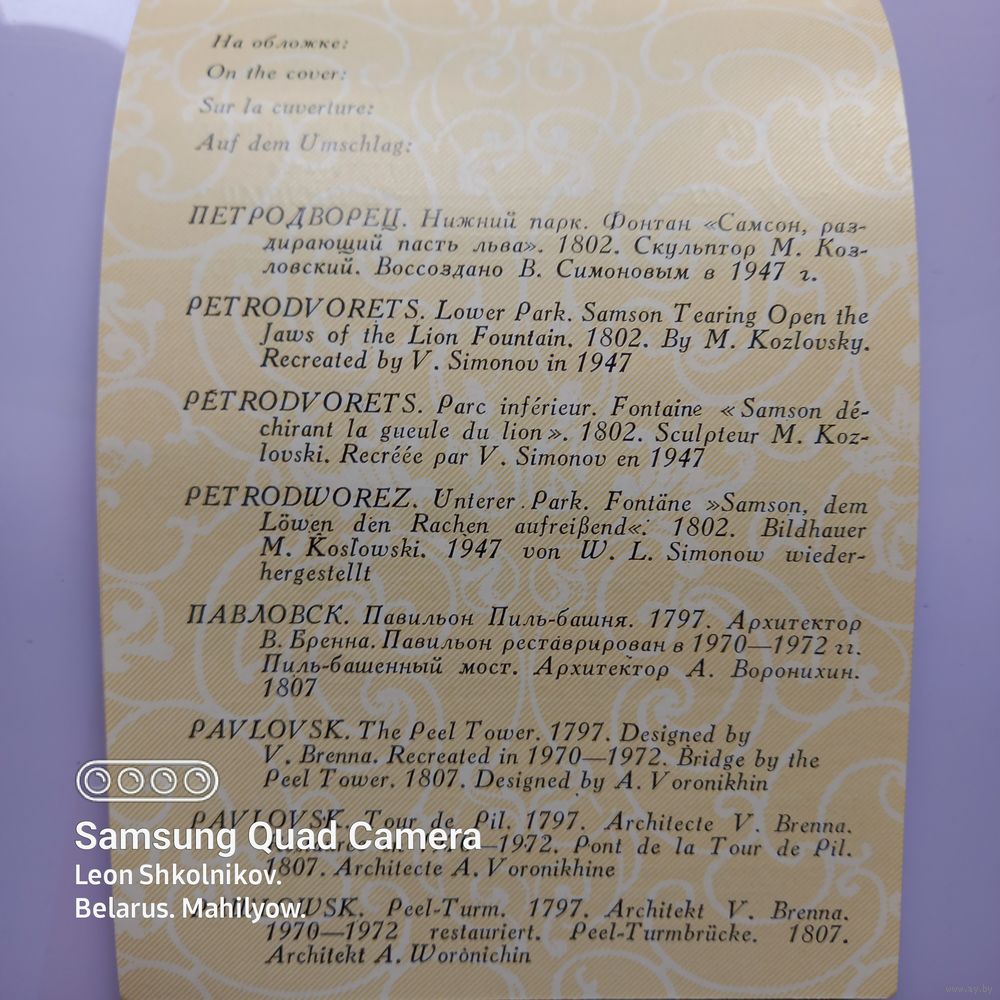 На обложке:
On the cover:
Sur la cuverture:
Auf dem Umschlag:
ПЕТРОДВОРЕЦ. Нижний парк. Фонтан «Самсон, раз-
дирающий пасть льва». 1802. Скульптор М. Коз-
ловский. Воссоздано В. Симоновым в 1947 г.
PETRODVORETS. Lower Park. Samson Tearing Open the
Jaws of the Lion Fountain. 1802. By M. Kozlovsky.
Recreated by V. Simonov in 1947
PÉTRODVORETS. Parc inférieur. Fontaine «Samson dé-
chirant la gueule du lion». 1802. Sculpteur M. Koz-
lovski. Recréée par V. Simonov en 1947
PETRODWOREZ. Unterer Park. Fontäne »Samson, dem
Löwen den Rachen aufreißend«. 1802. Bildhauer
M. Koslowski. 1947 von W. L. Simonow wieder-
hergestellt
ПАВЛОВСК. Павильон Пиль-башня. 1797. Архитектор
В. Бренна. Павильон реставрирован в 1970—1972 гг.
Пиль-башенный мост. Архитектор А. Воронихин.
1807
PAVLOVSK. The Peel Tower. 1797. Designed by
V. Brenna. Recreated in 1970—1972. Bridge by the
Peel Tower. 1807. Designed by A. Voronikhin
PAVLOVSK. Tour de Pil. 1797. Architecte V. Brenna.
—1972. Pont de la Tour de Pil.
1807. Architecte A. Voronikhine
Peel-Turm. 1797. Architekt V. Brenna.
1970—1972 restauriert. Peel-Turmbrücke. 1807.
Architekt A. Woronichin
Samsung Quad Camera
Leon Shkolnikov.
Belarus. Mahilyow.
www.ay.by